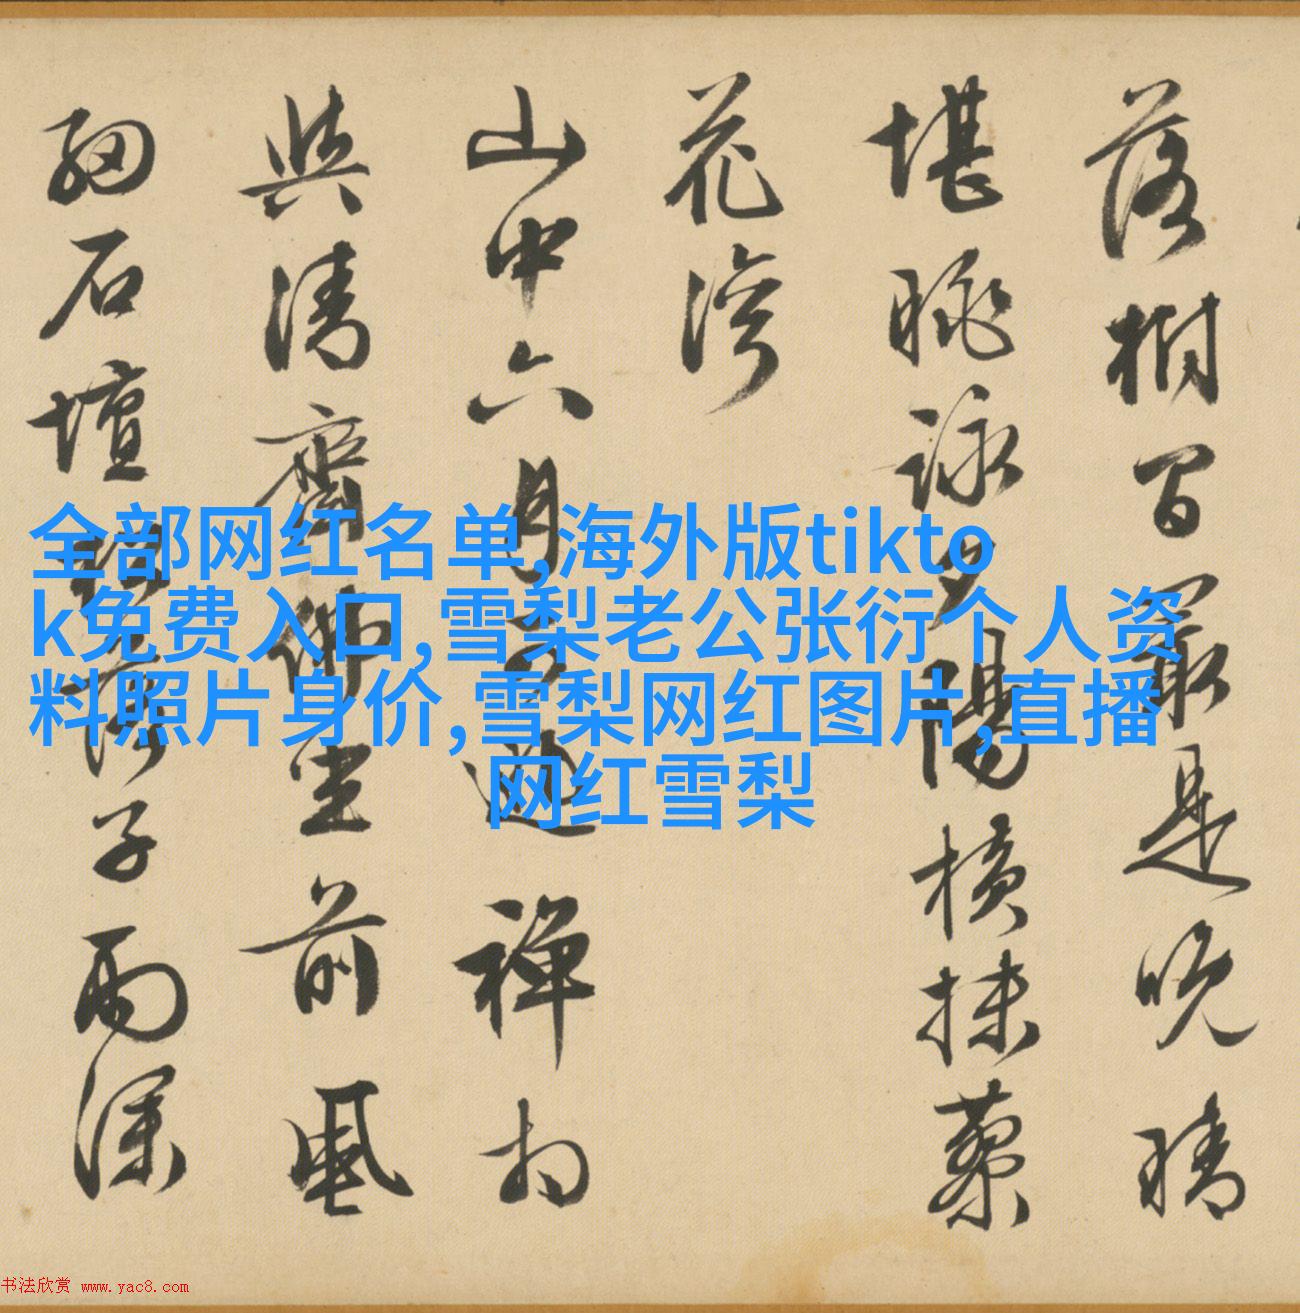 落樹間最是晚晴
堪眺詠夕陽橫抹藥
花灣
山中六月
與清齋佛坐前風
細石壇
落子雨深
全部网红名单,海外版tikto
k免费入口,雪梨老公张衍个人资
料照片身价,雪梨网红图片,直播
网红雪梨
书法欣赏 www.yac8.com